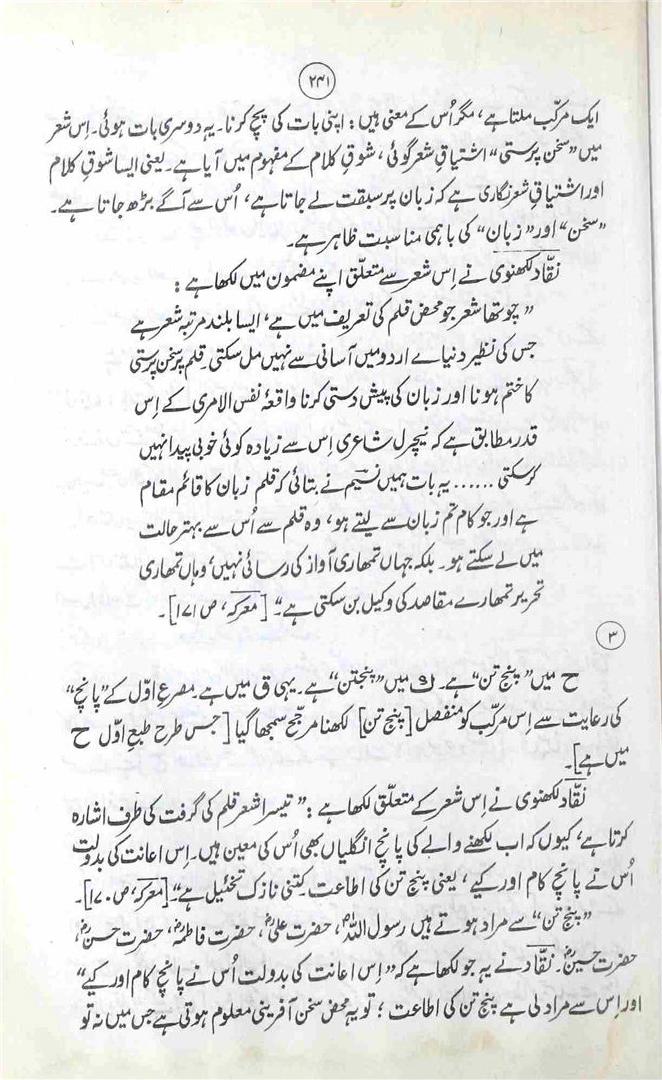 ۲۴۱
ایک مرکّب ملتا ہے، مگر اُس کے معنی ہیں: اپنی بات کی پچ کرنا۔ یہ دوسری بات ہوئی۔ اِس شعر
میں "سخن پرستی" اشتیاقِ شعر گوئی، شوقِ کلام کے مفہوم میں آیا ہے۔ یعنی ایسا شوقِ کلام
اور اشتیاقِ شعر نگاری ہے کہ زبان پر سبقت لے جاتا ہے، اُس سے آگے بڑھ جاتا ہے۔
"سخن" اور "زبان" کی باہمی مناسبت ظاہر ہے۔
نقّاد لکھنوی نے اِس شعر سے متعلّق اپنے مضمون میں لکھا ہے:
"چوتھا شعر جو محض قلم کی تعریف میں ہے، ایسا بلند مرتبہ شعر ہے
جس کی نظیر دنیاے اردو میں آسانی سے نہیں مل سکتی۔ قلم پر سخن پرستی
کا ختم ہونا اور زبان کی پیش دستی کرنا واقعۂ نفس الامری کے اِس
قدر مطابق ہے کہ نیچرل شاعری اِس سے زیادہ کوئی خوبی پیدا نہیں
کر سکتی ...... یہ بات ہمیں نسیمؔ نے بتائی کہ قلم زبان کا قائم مقام
ہے اور جو کام تم زبان سے لیتے ہو، وہ قلم سے اُس سے بہتر حالت
میں لے سکتے ہو۔ بلکہ جہاں تمھاری آواز کی رسائی نہیں، وہاں تمھاری
تحریر تمھارے مقاصد کی وکیل بن سکتی ہے۔" [معرکہ، ص ۱۷۱]۔
۳
ح میں "پنج تن" ہے۔ ک میں "پنجتن" ہے۔ یہی ق میں ہے۔ مصرعِ اوّل کے "پانچ"
کی رعایت سے اِس مرکّب کو منفصل [پنج تن] لکھنا مرجّح سمجھا گیا [جس طرح طبعِ اوّل ح
میں ہے]۔
نقّاد لکھنوی نے اِس شعر کے متعلّق لکھا ہے: "تیسرا شعر قلم کی گرفت کی طرف اشارہ
کرتا ہے، کیوں کہ اب لکھنے والے کی پانچ انگلیاں بھی اُس کی معین ہیں۔ اِس اعانت کی بدولت
اُس نے پانچ کام اور کیے، یعنی پنج تن کی اطاعت۔ کتنی نازک تخئیل ہے" [معرکہ، ص ۱۷۰]۔
"پنج تن" سے مراد ہوتے ہیں رسول اللہؐ، حضرت علیؓ، حضرت فاطمہؓ، حضرت حسنؓ،
حضرت حسینؓ۔ نقّاد نے یہ جو لکھا ہے کہ "اِس اعانت کی بدولت اُس نے پانچ کام اور کیے"
اور اِس سے مراد لی ہے پنج تن کی اطاعت؛ تو یہ محض سخن آفرینی معلوم ہوتی ہے جس میں نہ تو